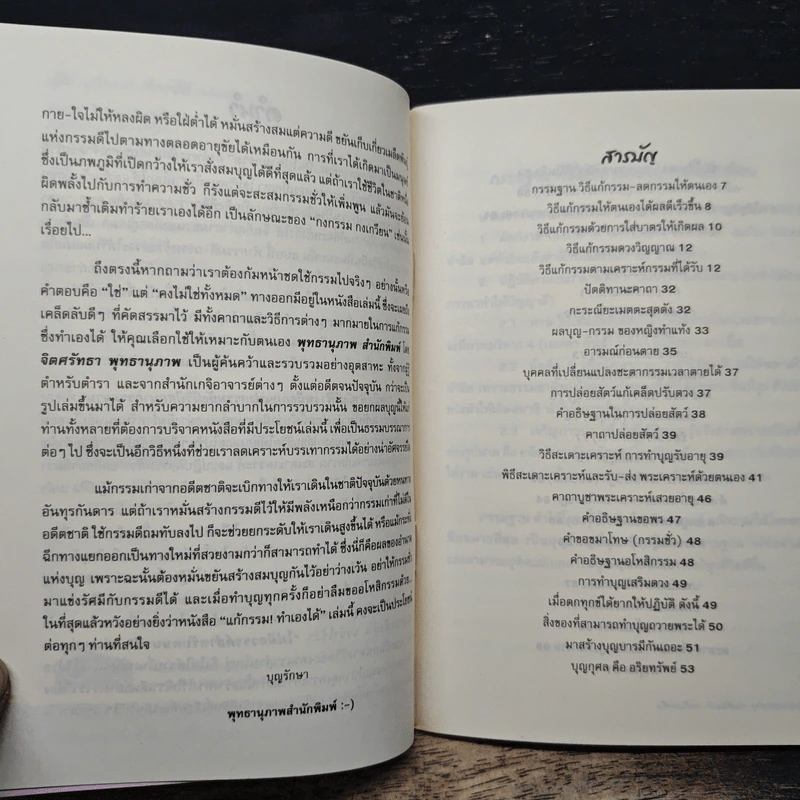 กาย-ใจไม่ให้หลงผิด หรือใฝ่ต่ำได้ หมั่นสร้างสมแต่ความดี ขยันเก็บเกี่ยวเมล็ดพันธุ์
แห่งกรรมดีไปตามทางตลอดอายุขัยได้เหมือนกัน การที่เราได้เกิดมาเป็นมนุษย์
ซึ่งเป็นภพภูมิที่เปิดกว้างให้เราสั่งสมบุญได้ดีที่สุดแล้ว แต่ถ้าเราใช้ชีวิตในชาติหนึ่ง
ผิดพลั้งไปกับการทำความชั่ว ก็รังแต่จะสะสมกรรมชั่วให้เพิ่มพูน แล้วมันจะย้อน
กลับมาซ้ำเติมทำร้ายเราเองได้อีก เป็นลักษณะของ "กงกรรม กงเกวียน" เช่นนั้น
เรื่อยไป...
ถึงตรงนี้หากถามว่าเราต้องก้มหน้าชดใช้กรรมไปจริงๆ อย่างนั้นหรือ
คำตอบคือ "ใช่" แต่ "คงไม่ใช่ทั้งหมด" ทางออกมีอยู่ในหนังสือเล่มนี้ ซึ่งจะเผย
เคล็ดลับดีๆ ที่คัดสรรมาไว้ มีทั้งคาถาและวิธีการต่างๆ มากมายในการแก้กรรม
ซึ่งทำเองได้ ให้คุณเลือกใช้ให้เหมาะกับตนเอง พุทธานุภาพ สำนักพิมพ์ โดย
จิตศรัทธา พุทธานุภาพ เป็นผู้ค้นคว้าและรวบรวมอย่างอุตสาหะ ทั้งจากผู้รู้
ตำหรับตำรา และจากสำนักเกจิอาจารย์ต่างๆ ตั้งแต่อดีตจนปัจจุบัน กว่าจะเป็น
รูปเล่มขึ้นมาได้ สำหรับความยากลำบากในการรวบรวมนั้น ขอยกผลบุญนี้ให้แก่
ท่านทั้งหลายที่ต้องการบริจาคหนังสือที่มีประโยชน์เล่มนี้ เพื่อเป็นธรรมบรรณาการ
ต่อๆ ไป ซึ่งจะเป็นอีกวิธีหนึ่งที่ช่วยเราลดเคราะห์บรรเทากรรมได้อย่างน่าอัศจรรย์ใจ
แม้กรรมเก่าจากอดีตชาติจะเบิกทางให้เราเดินในชาติปัจจุบันด้วยหนทาง
อันทุรกันดาร แต่ถ้าเราหมั่นสร้างกรรมดีไว้ให้มีพลังเหนือกว่ากรรมเก่าที่ไม่ดีใน
อดีตชาติ ใช้กรรมดีถมทับลงไป ก็จะช่วยยกระดับให้เราเดินสูงขึ้นได้ หรือแม้กระทั่ง
ฉีกทางแยกออกเป็นทางใหม่ที่สวยงามกว่าก็สามารถทำได้ ซึ่งนี่ก็คือผลของอำนาจ
แห่งบุญ เพราะฉะนั้นต้องหมั่นขยันสร้างสมบุญกันไว้อย่าว่างเว้น อย่าให้กรรมชั่ว
มาแข่งรัศมีกับกรรมดีได้ และเมื่อทำบุญทุกครั้งก็อย่าลืมขออโหสิกรรมด้วย...
ในที่สุดแล้วหวังอย่างยิ่งว่าหนังสือ "แก้กรรม! ทำเองได้" เล่มนี้ คงจะเป็นประโยชน์
ต่อทุกๆ ท่านที่สนใจ
บุญรักษา
พุทธานุภาพสำนักพิมพ์ :-)
สารบัญ
กรรมฐาน วิธีแก้กรรม-ลดกรรมให้ตนเอง 7
วิธีแก้กรรมให้ตนเองได้ผลดีเร็วขึ้น 8
วิธีแก้กรรมด้วยการใส่บาตรให้เกิดผล 10
วิธีแก้กรรมดวงวิญญาณ 12
วิธีแก้กรรมตามเคราะห์กรรมที่ได้รับ 12
ปัตติทานะคาถา 32
กะระณียะเมตตะสุตตัง 32
ผลบุญ-กรรม ของหญิงทำแท้ง 33
อารมณ์ก่อนตาย 35
บุคคลที่เปลี่ยนแปลงชะตากรรมเวลาตายได้ 37
การปล่อยสัตว์แก้เคล็ดปรับดวง 37
คำอธิษฐานในการปล่อยสัตว์ 38
คาถาปล่อยสัตว์ 39
วิธีสะเดาะเคราะห์ การทำบุญรับอายุ 39
พิธีสะเดาะเคราะห์และรับ-ส่ง พระเคราะห์ด้วยตนเอง 41
คาถาบูชาพระเคราะห์เสวยอายุ 46
คำอธิษฐานขอพร 47
คำขอขมาโทษ (กรรมชั่ว) 48
คำอธิษฐานอโหสิกรรม 48
การทำบุญเสริมดวง 49
เมื่อตกทุกข์ได้ยากให้ปฏิบัติ ดังนี้ 49
สิ่งของที่สามารถทำบุญถวายพระได้ 50
มาสร้างบุญบารมีกันเถอะ 51
บุญกุศล คือ อริยทรัพย์ 53